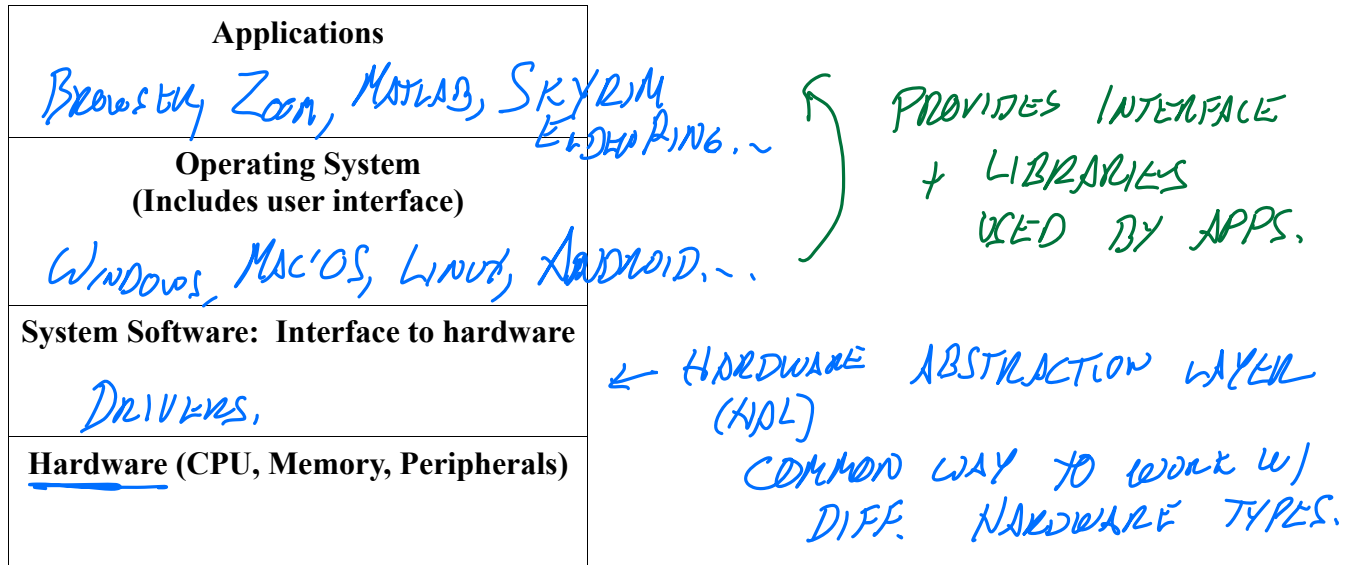 Applications
BROWSER, ZOOM, MATLAB, SKYRIM
ELDEN RING...
Operating System
(Includes user interface)
WINDOWS, MAC'OS, LINUX, ANDROID...
System Software: Interface to hardware
DRIVERS.
Hardware (CPU, Memory, Peripherals)
PROVIDES INTERFACE
+ LIBRARIES
USED BY APPS.
← HARDWARE ABSTRACTION LAYER
(HAL)
COMMON WAY TO WORK W/
DIFF. HARDWARE TYPES.